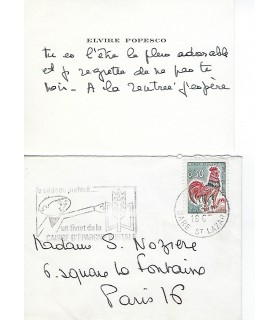 ELVIRE POPESCO
tu es l'être le plus adorable
et je regrette de ne pas te
voir - A la rentrée j'espère
un livret de la
CAISSE D'EPARGNE
0,30
GARE ST LAZARE
Madame S. Nozière
6. square La Fontaine
Paris 16